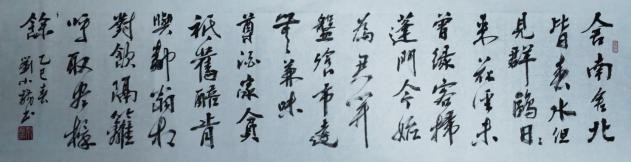 舍南舍北
皆春水但
見群鷗日々
來花徑未
曾緣客掃
蓬門今始
為君開
盤飧市遠
無兼味
尊酒家貧
祗舊醅肯
與鄰翁相
對飲隔籬
呼取盡
餘
乙巳春
劉小 书